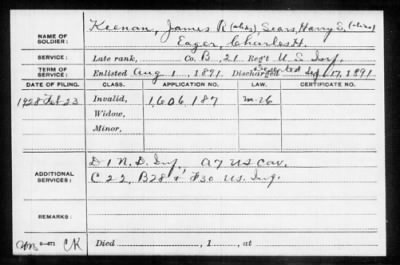 NAME OF SOLDIER: Keenan, James R (alias), Sears, Harry S. (alias)
Eager, Charles H.
SERVICE: Late rank, Co. B, 21 Reg't U.S. Inf.
TERM OF SERVICE: Enlisted Aug 1, 1891, Discharged deserted Sep. 17, 1891
DATE OF FILING. CLASS. APPLICATION NO. LAW. CERTIFICATE NO.
1928 Feb 23 Invalid, 1606187 M-26
Widow,
Minor,
ADDITIONAL SERVICES: D 1 N.D. Inf., A 7 US Cav.
C 22, B 28 & F 30 US. Inf.
REMARKS:
CK Died , 1 , at